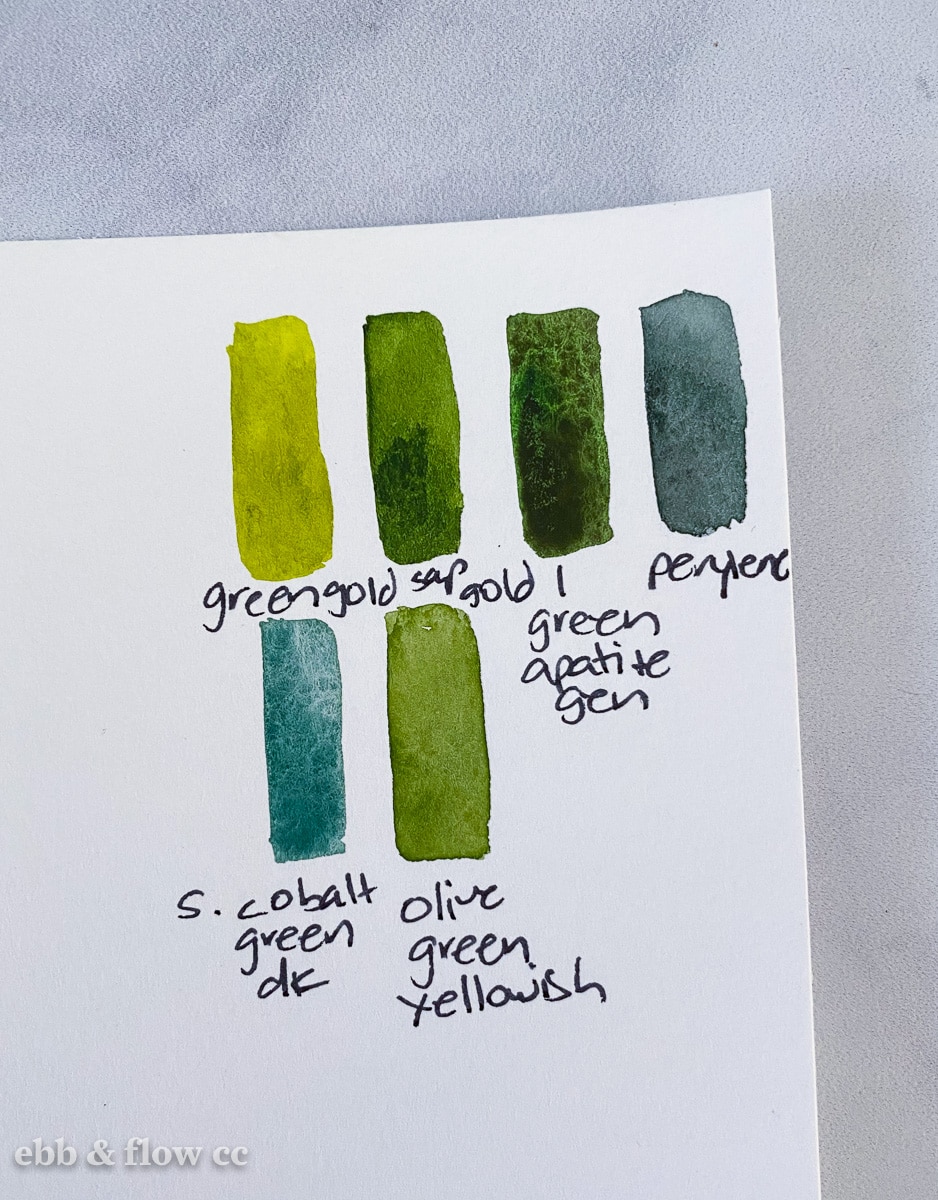 greengold sap gold | perylene
green
apatite
gen
s. cobalt
green
dk
olive
green
yellowish
ebb & flow cc